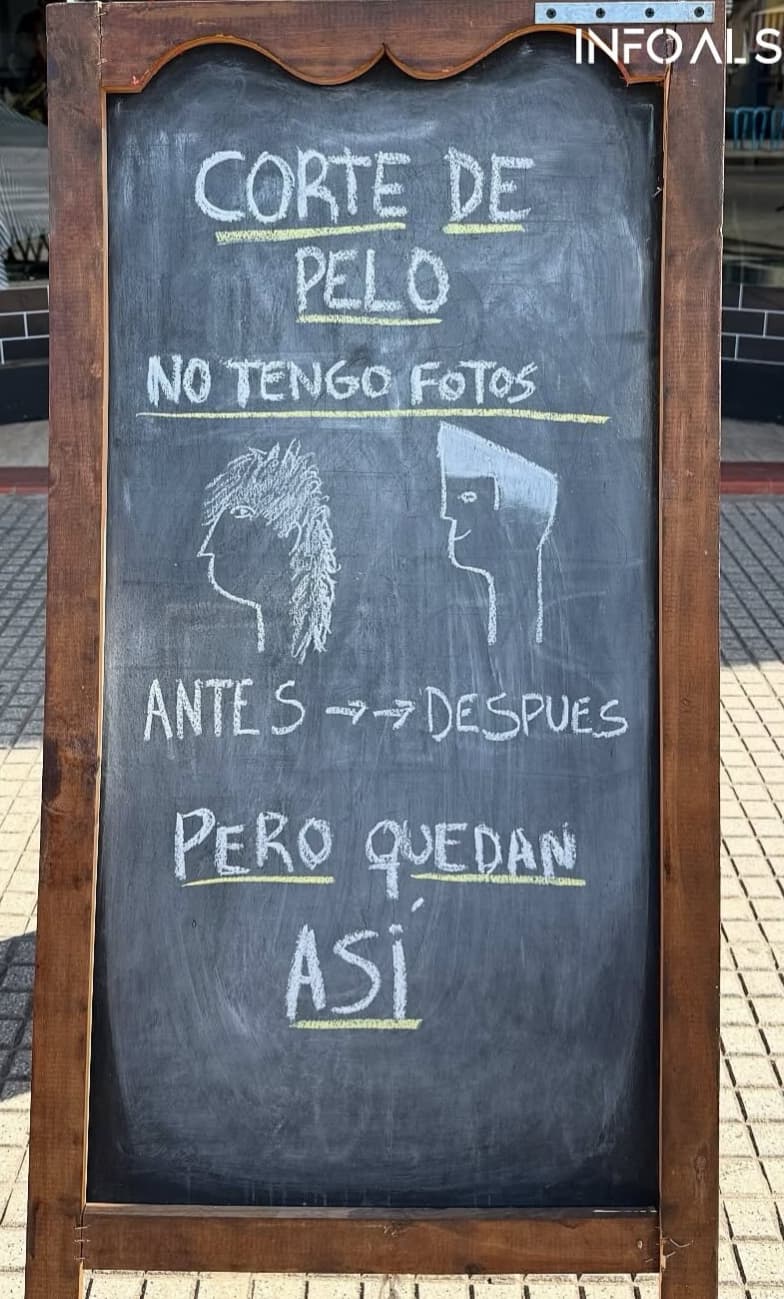 INFOALS
CORTE DE
PELO
NO TENGO FOTOS
ANTES →→ DESPUES
PERO QUEDAN
ASÍ